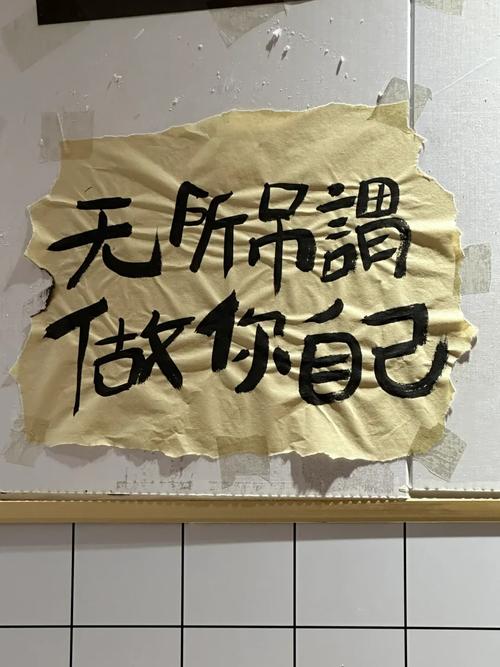 无所吊謂
做你自己